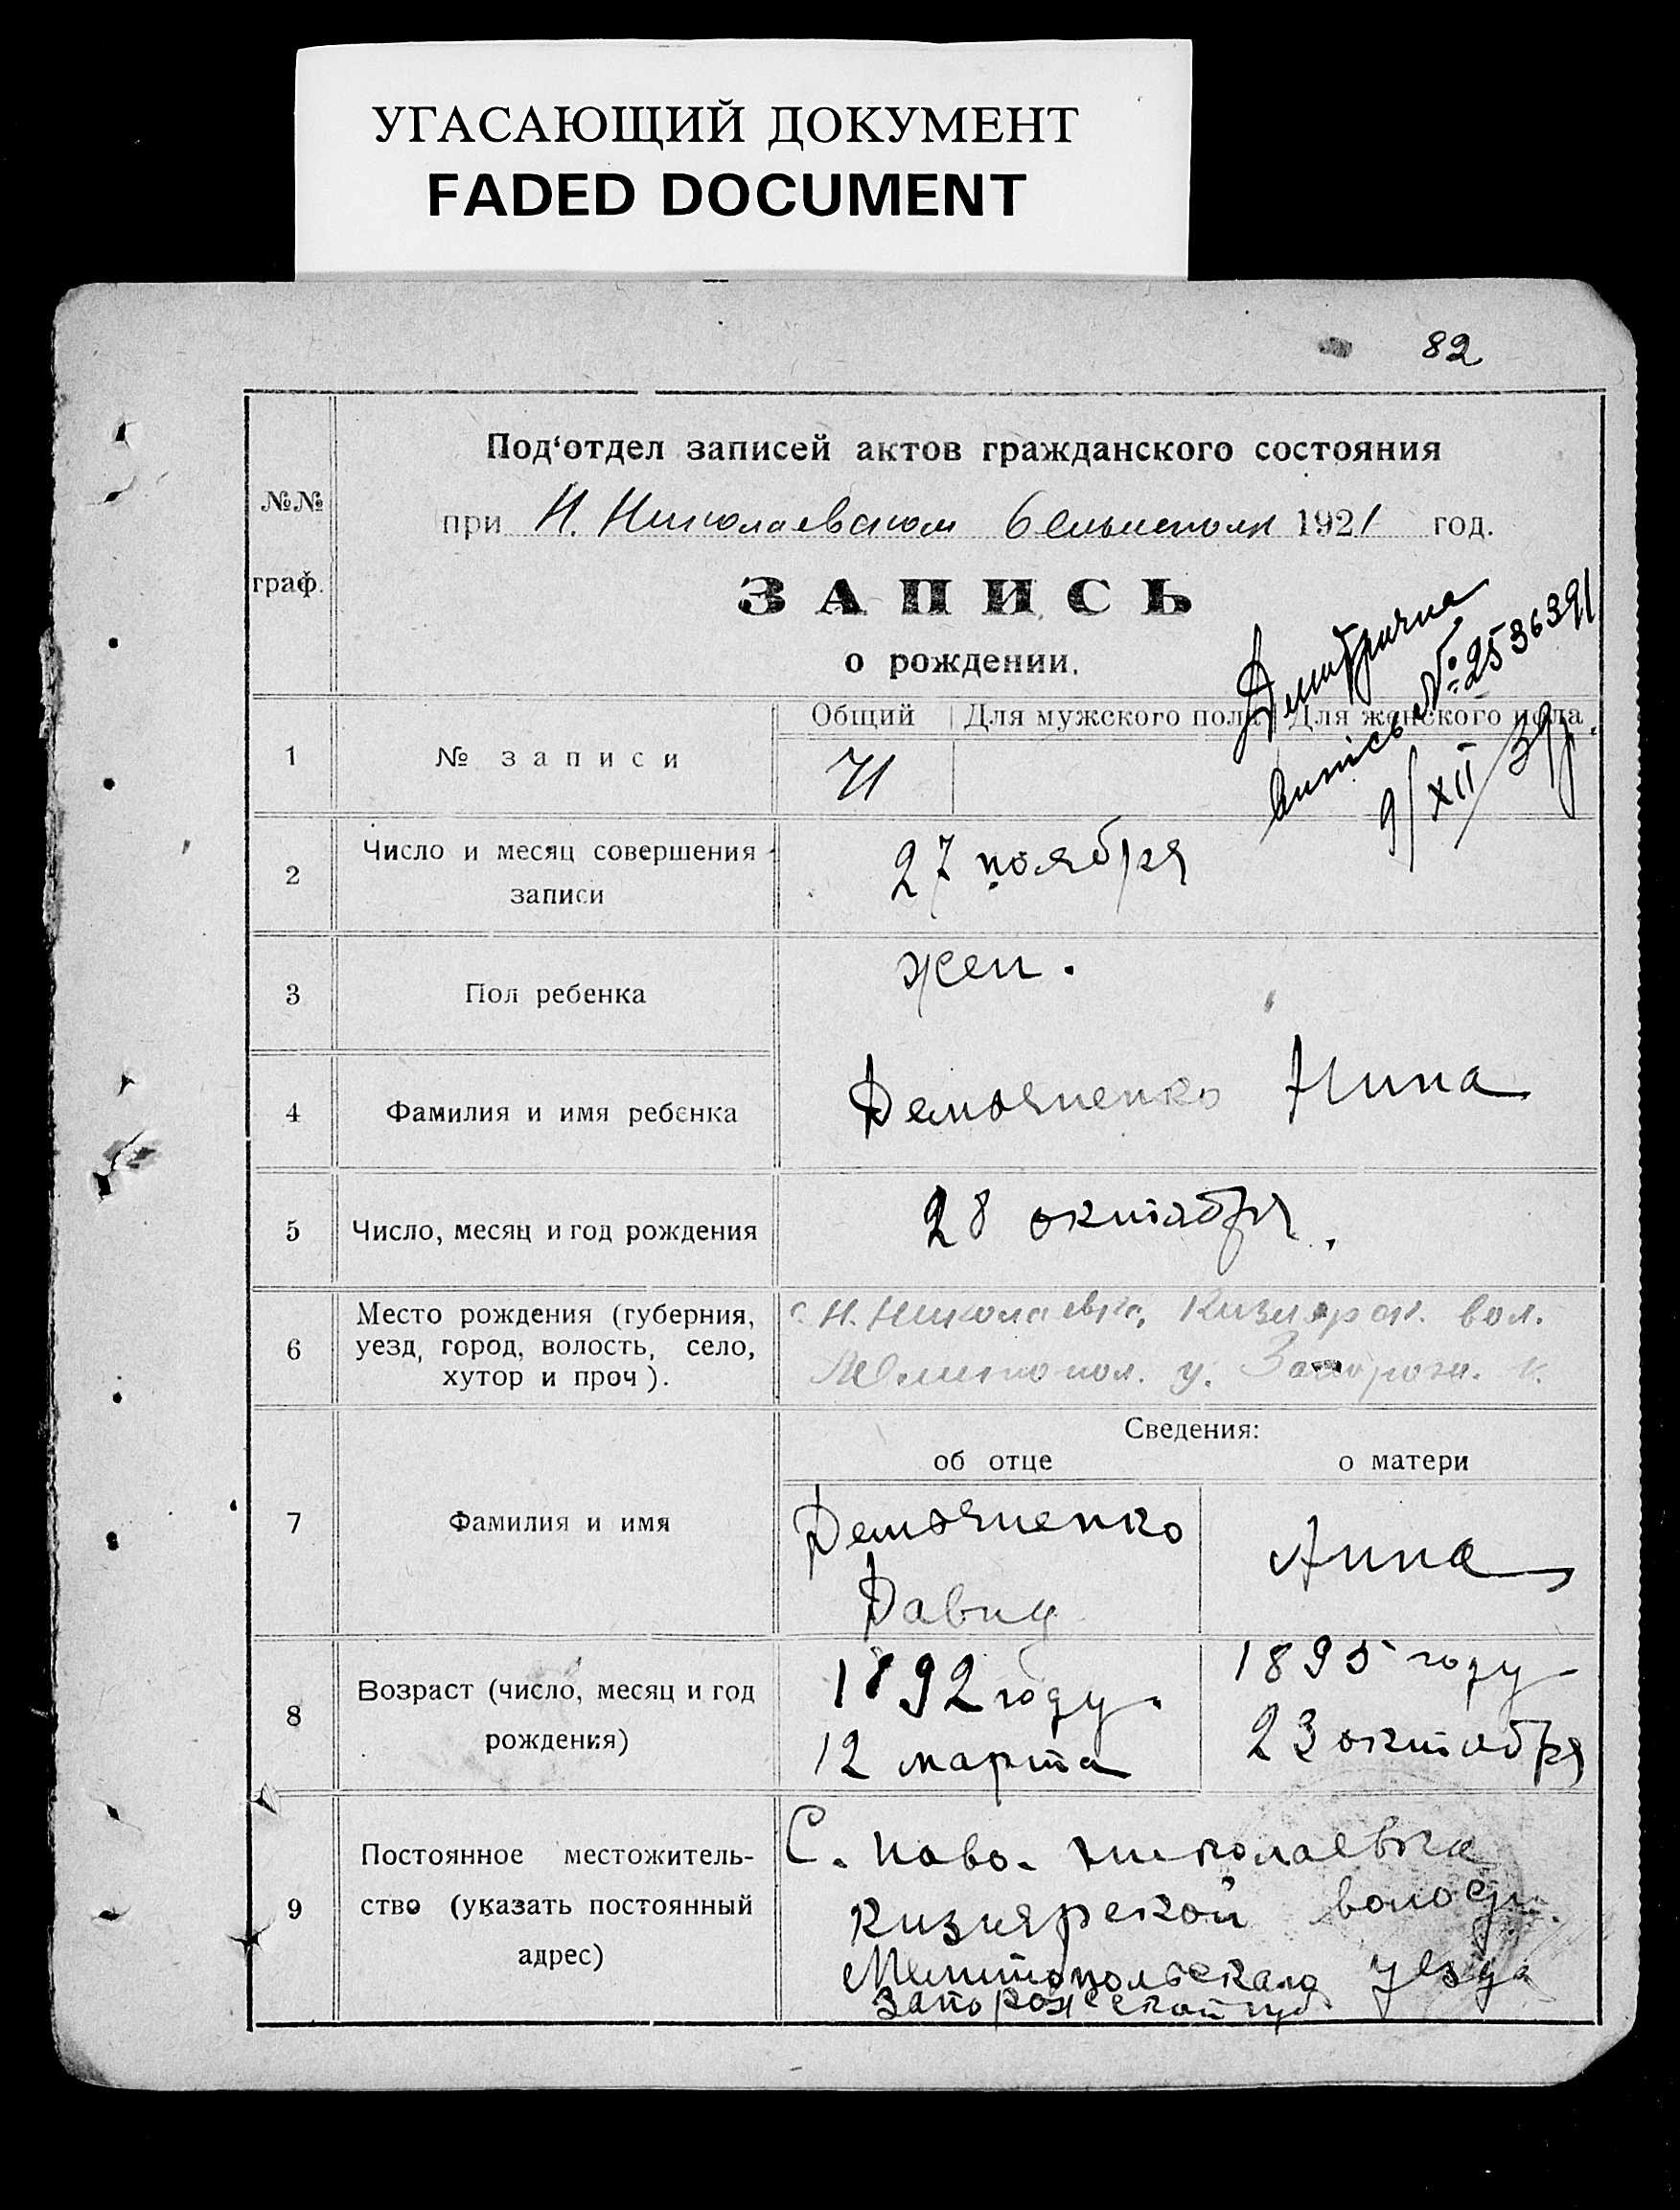 УГАСАЮЩИЙ ДОКУМЕНТ
FADED DOCUMENT
82
№№
граф.
Под‘отдел записей актов гражданского состояния
при Н. Николаевском 1921 год.
ЗАПИСЬ
о рождении.
№ 2536391
9/XII/39р.
1 № записи
Общий Для мужского пола Для женского пола
71
2 Число и месяц совершения
записи
27 ноября
3 Пол ребенка
жен.
4 Фамилия и имя ребенка
Демьяненко Нина
5 Число, месяц и год рождения
28 октября.
6 Место рождения (губерния,
уезд, город, волость, село,
хутор и проч).
с. Н. Николаевка, Кизиярск. вол.
Мелитопол. у. Запорож. г.
Сведения:
об отце о матери
7 Фамилия и имя
Демьяненко
Давид
Анна
8 Возраст (число, месяц и год
рождения)
1892 году.
12 марта
1895 году
23 октября
9 Постоянное местожитель-
ство (указать постоянный
адрес)
С. Ново. Николаевка
Кизиярской
Мелитопольскаго уезда
Запорожской губ.